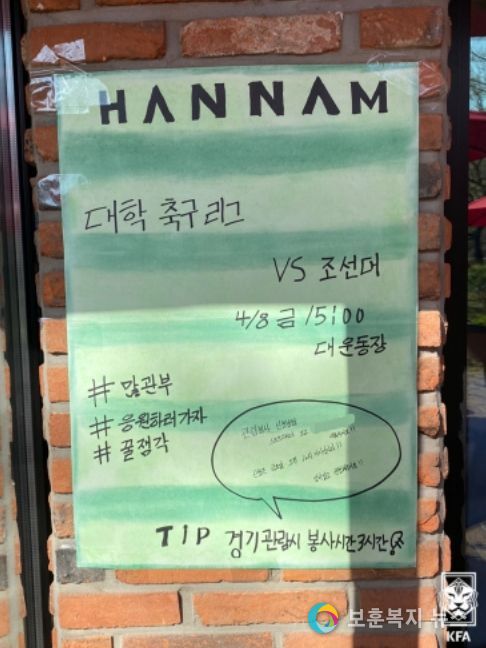 HANNAM
대학 축구 리그
VS 조선대
4/8 금 15:00
대운동장
# 많관부
# 응원하러가자
# 꿀잼각
TIP 경기관람시 봉사시간 3시간
보훈복지 뉴
KFA